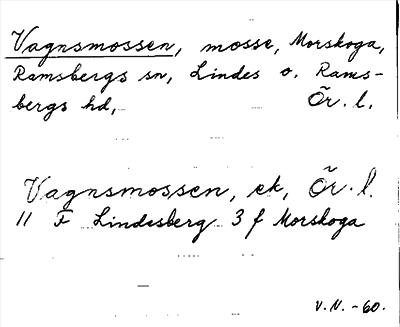 Vagnsmossen, mosse, Morskoga,
Ramsbergs sn, Lindes o. Rams-
bergs hd, Ör. l.
Vagnsmossen, ek, Ör. l.
11 F Lindesberg 3 f Morskoga
V.N. -60.